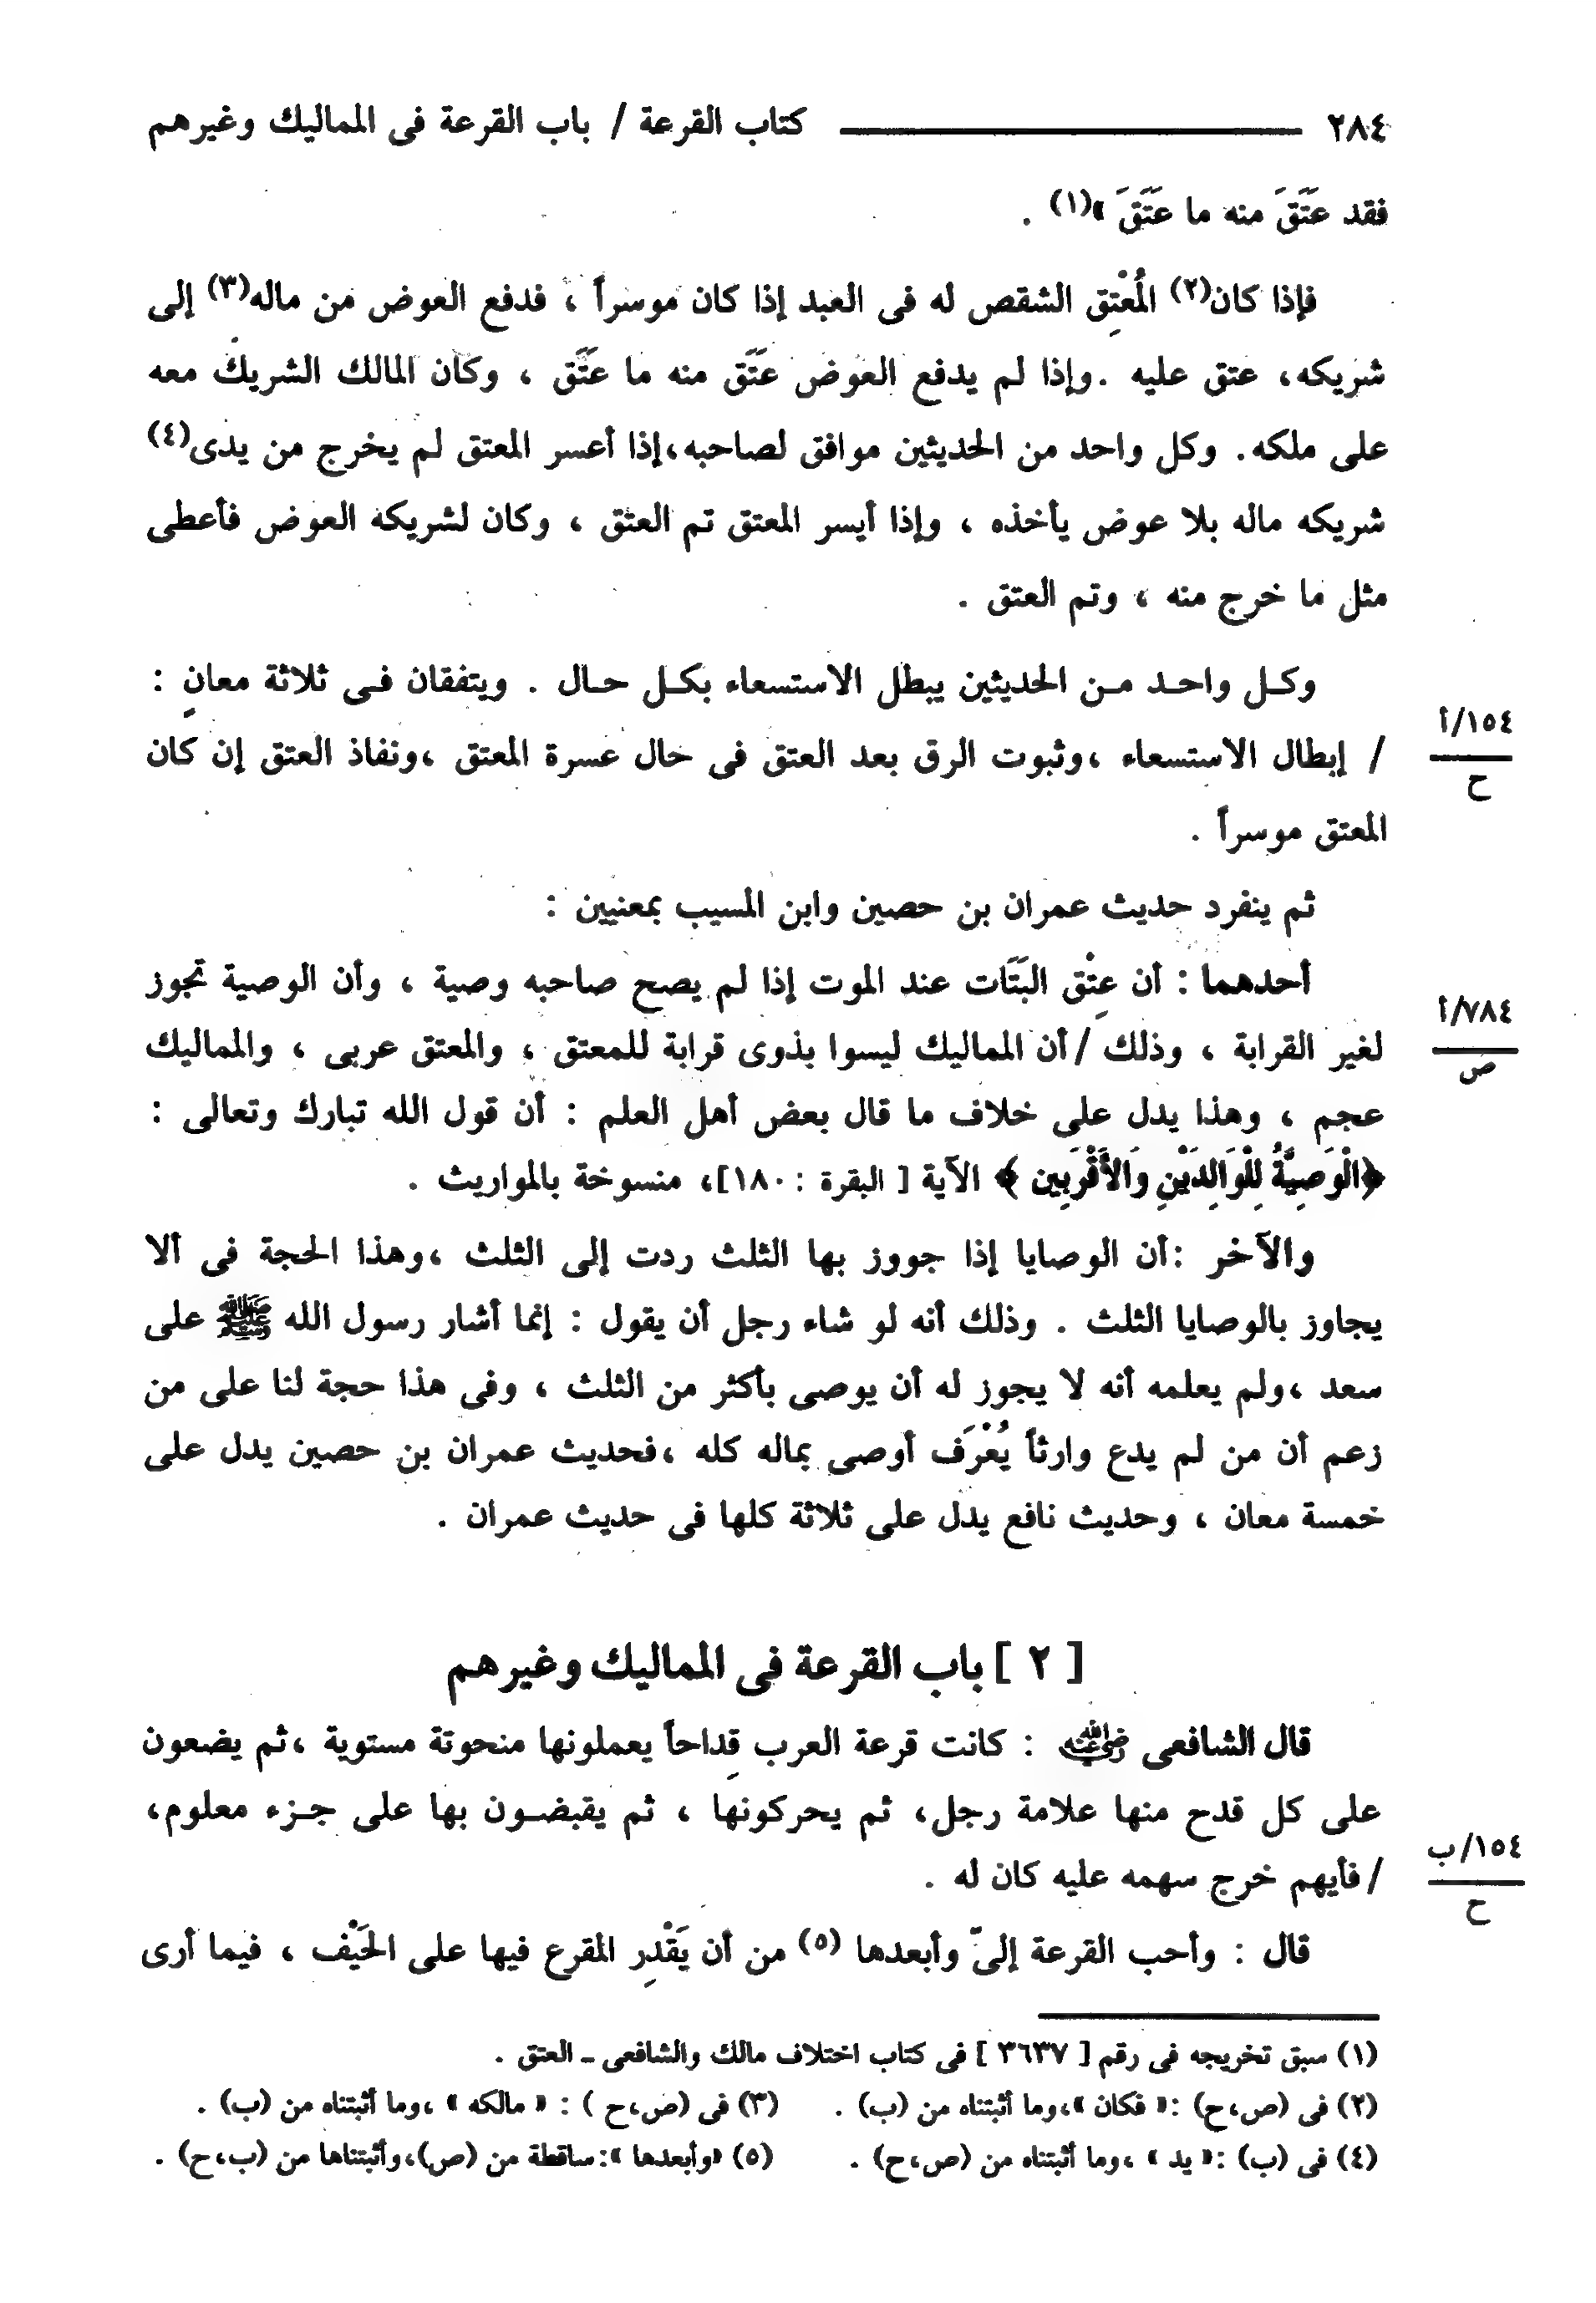 ٢٨٤ كتاب القرعة / باب القرعة فى المماليك وغيرهم
فقد عَتَقَ منه ما عَتَقَ »(١) .
فإذا كان(٢) المُعْتِق الشقص له فى العبد إذا كان موسراً ، فدفع العوض من ماله(٣) إلى
شريكه، عتق عليه .وإذا لم يدفع العوض عَتَق منه ما عَتَق ، وكان المالك الشريك معه
على ملكه. وكل واحد من الحديثين موافق لصاحبه،إذا أعسر المعتق لم يخرج من يدى(٤)
شريكه ماله بلا عوض يأخذه ، وإذا أيسر المعتق تم العتق ، وكان لشريكه العوض فأعطى
مثل ما خرج منه ، وتم العتق .
وكل واحد من الحديثين يبطل الاستسعاء بكل حال . ويتفقان فى ثلاثة معانٍ :
١٥٤/أ
ح
/ إبطال الاستسعاء ،وثبوت الرق بعد العتق فى حال عسرة المعتق ،ونفاذ العتق إن كان
المعتق موسراً .
ثم ينفرد حديث عمران بن حصين وابن المسيب بمعنيين :
أحدهما : أن عِتْق البَتَات عند الموت إذا لم يصح صاحبه وصية ، وأن الوصية تجوز
٧٨٤/أ
ص
لغير القرابة ، وذلك /أن المماليك ليسوا بذوى قرابة للمعتق ، والمعتق عربى ، والمماليك
عجم ، وهذا يدل على خلاف ما قال بعض أهل العلم : أن قول الله تبارك وتعالى :
﴿الْوَصِيَّةُ لِلْوَالِدَيْنِ وَالأَقْرَبِين ﴾ الآية [ البقرة : ١٨٠]، منسوخة بالمواريث .
والآخر :أن الوصايا إذا جووز بها الثلث ردت إلى الثلث ،وهذا الحجة فى ألا
يجاوز بالوصايا الثلث . وذلك أنه لو شاء رجل أن يقول : إنما أشار رسول الله ﷺ على
سعد ،ولم يعلمه أنه لا يجوز له أن يوصى بأكثر من الثلث ، وفى هذا حجة لنا على من
زعم أن من لم يدع وارثاً يُعْرَف أوصى بماله كله ،فحديث عمران بن حصين يدل على
خمسة معان ، وحديث نافع يدل على ثلاثة كلها فى حديث عمران .
[ ٢ ] باب القرعة فى المماليك وغيرهم
قال الشافعى رضي الله عنه : كانت قرعة العرب قِداحاً يعملونها منحوتة مستوية ،ثم يضعون
على كل قدح منها علامة رجل، ثم يحركونها ، ثم يقبضون بها على جزء معلوم،
١٥٤/ب
ح
/فأيهم خرج سهمه عليه كان له .
قال : وأحب القرعة إلىّ وأبعدها (٥) من أن يَقْدِر المقرع فيها على الحَيْف ، فيما أرى
(١) سبق تخريجه فى رقم [ ٣٦٣٧ ] فى كتاب اختلاف مالك والشافعى ـ العتق .
(٢) فى (ص،ح) :« فكان »،وما أثبتناه من (ب) . (٣) فى (ص،ح ) : « مالكه » ،وما أثبتناه من (ب) .
(٤) فى (ب) :« يد » ،وما أثبتناه من (ص،ح) . (٥) «وأبعدها »:ساقطة من (ص)،وأثبتناها من (ب،ح) .